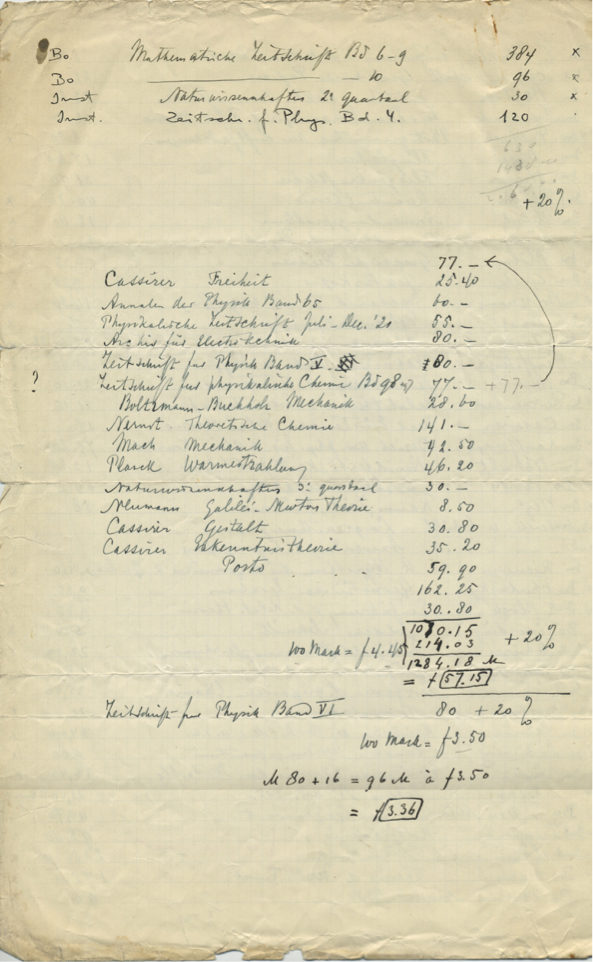 Bo Mathematische Zeitschrift Bd 6-9 384 x
Bo — 10 96 x
Inst Naturwissenschaften 2e quartaal 30 x
Inst. Zeitschr. f. Phys. Bd. 4. 120
630
+20%
77.—
Cassirer Freiheit 25.40
Annalen der Physik Band 65 60.—
Physikalische Zeitschrift Juli-Dec. '21 55.—
Archiv für Electrotechnik 80.—
Zeitschrift für Physik Band V 80.—
? Zeitschrift für physikalische Chemie Bd 98 77.— +77.—
Boltzmann-Buchholz Mechanik 28.60
Nernst Theoretische Chemie 141.—
Mach Mechanik 42.50
Planck Warmestrahlung 46.20
Naturwissenschaften 3e quartaal 30.—
Neumann Galilei-Newton Theorie 8.50
Cassirer Gestalt 30.80
Cassirer Erkenntnistheorie 35.20
Porto 59.90
162.25
30.80
1070.15 +20%
100 Mark = f 4.45 214.03
1284.18 M
= f 57.15
Zeitschrift für Physik Band VI 80 + 20%
100 Mark = f 3.50
M 80 + 16 = 96 M à f 3.50
= f 3.36